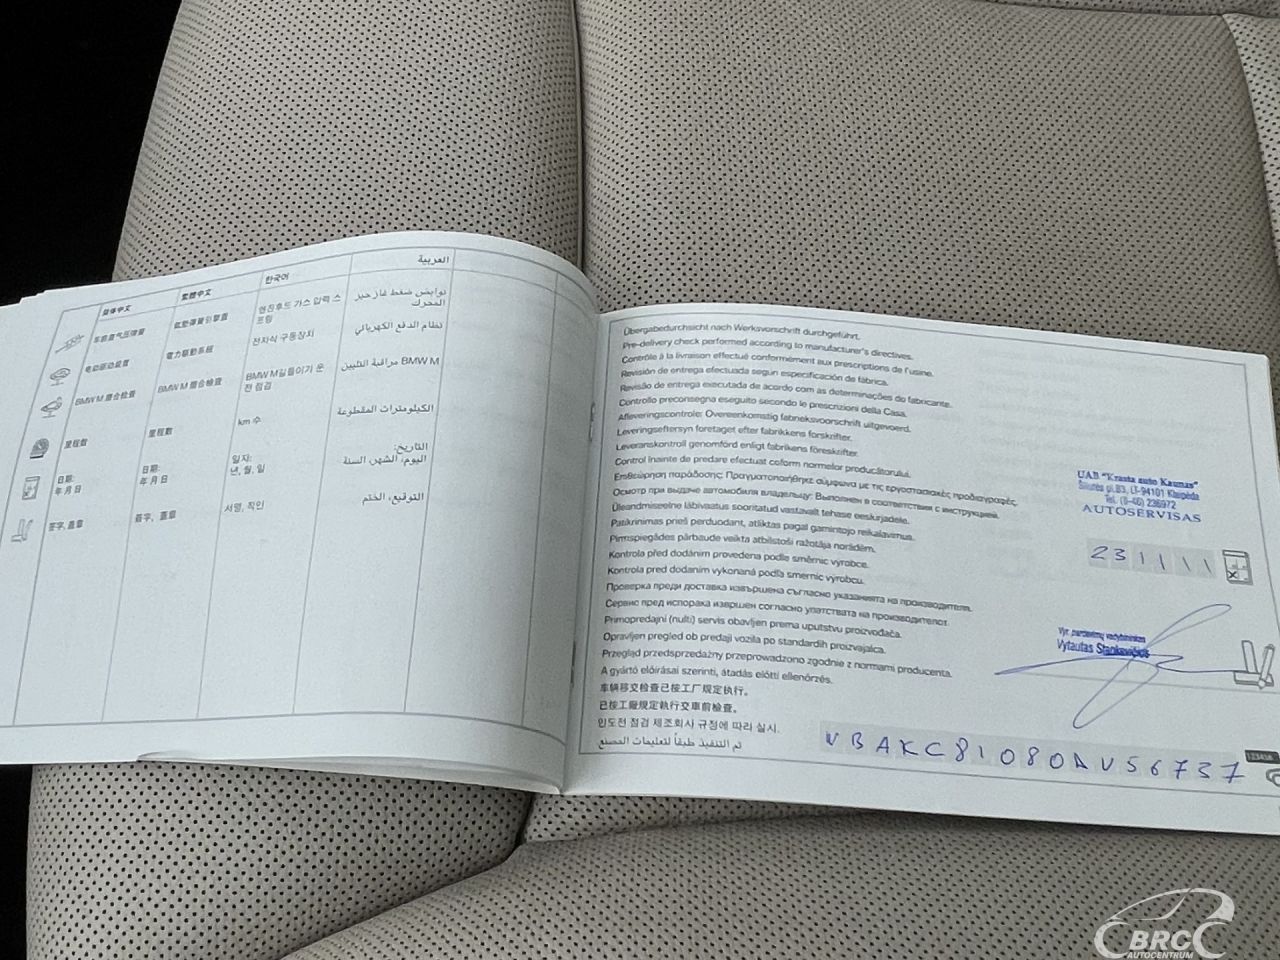 简体中文 繁體中文 한국어 العربية
车前盖气压弹簧 엔진후드 가스 압력 스프링 نوابض ضغط غاز حيز المحرك
电动驱动装置 電力驅動系統 전자식 구동장치 نظام الدفع الكهربائي
BMW M 磨合检查 BMW M 磨合檢查 BMW M길들이기 운전 점검 BMW M مراقبة التليين
里程数 里程數 km 수 الكيلومترات المقطوعة
日期: 年 月 日 日期: 年 月 日 일자: 년, 월, 일 التاريخ: اليوم، الشهر، السنة
签字, 盖章 簽字, 蓋章 서명, 직인 التوقيع، الختم
Übergabedurchsicht nach Werksvorschrift durchgeführt.
Pre-delivery check performed according to manufacturer's directives.
Contrôle à la livraison effectué conformément aux prescriptions de l'usine.
Revisión de entrega efectuada según especificación de fábrica.
Revisão de entrega executada de acordo com as determinações do fabricante.
Controllo preconsegna eseguito secondo le prescrizioni della Casa.
Afleveringscontrole: Overeenkomstig fabrieksvoorschrift uitgevoerd.
Leveringseftersyn foretaget efter fabrikkens forskrifter.
Leveranskontroll genomförd enligt fabrikens föreskrifter.
Control înainte de predare efectuat coform normelor producătorului.
Επιθεώρηση παράδοσης: Πραγματοποιήθηκε σύμφωνα με τις εργοστασιακές προδιαγραφές.
Осмотр при выдаче автомобиля владельцу: Выполнен в соответствии с инструкцией.
Üleandmiseelne läbivaatus sooritatud vastavalt tehase eeskirjadele.
Patikrinimas prieš perduodant, atliktas pagal gamintojo reikalavimus.
Pirmspiegādes pārbaude veikta atbilstoši ražotāja norādēm.
Kontrola před dodáním provedena podle směrnic výrobce.
Kontrola pred dodaním vykonaná podľa smerníc výrobcu.
Проверка преди доставка извършена съгласно указанията на производителя.
Сервис пред испорака извршен согласно упатствата на производителот.
Primopredajni (nulti) servis obavljen prema uputstvu proizvođača.
Opravljen pregled ob predaji vozila po standardih proizvajalca.
Przegląd przedsprzedażny przeprowadzono zgodnie z normami producenta.
A gyártó előírásai szerinti, átadás előtti ellenőrzés.
车辆移交检查已按工厂规定执行。
已按工廠規定執行交車前檢查。
인도전 점검 제조회사 규정에 따라 실시.
تم التنفيذ طبقاً لتعليمات المصنع
UAB "Krasta auto Kaunas"
Šilutės pl.83, LT-94101 Klaipėda
Tel. (8-46) 236972
AUTOSERVISAS
23 11 11
Vytautas Stankevičius
WBAKC81080AV56737
123456
BRC
AUTOCENTRUM